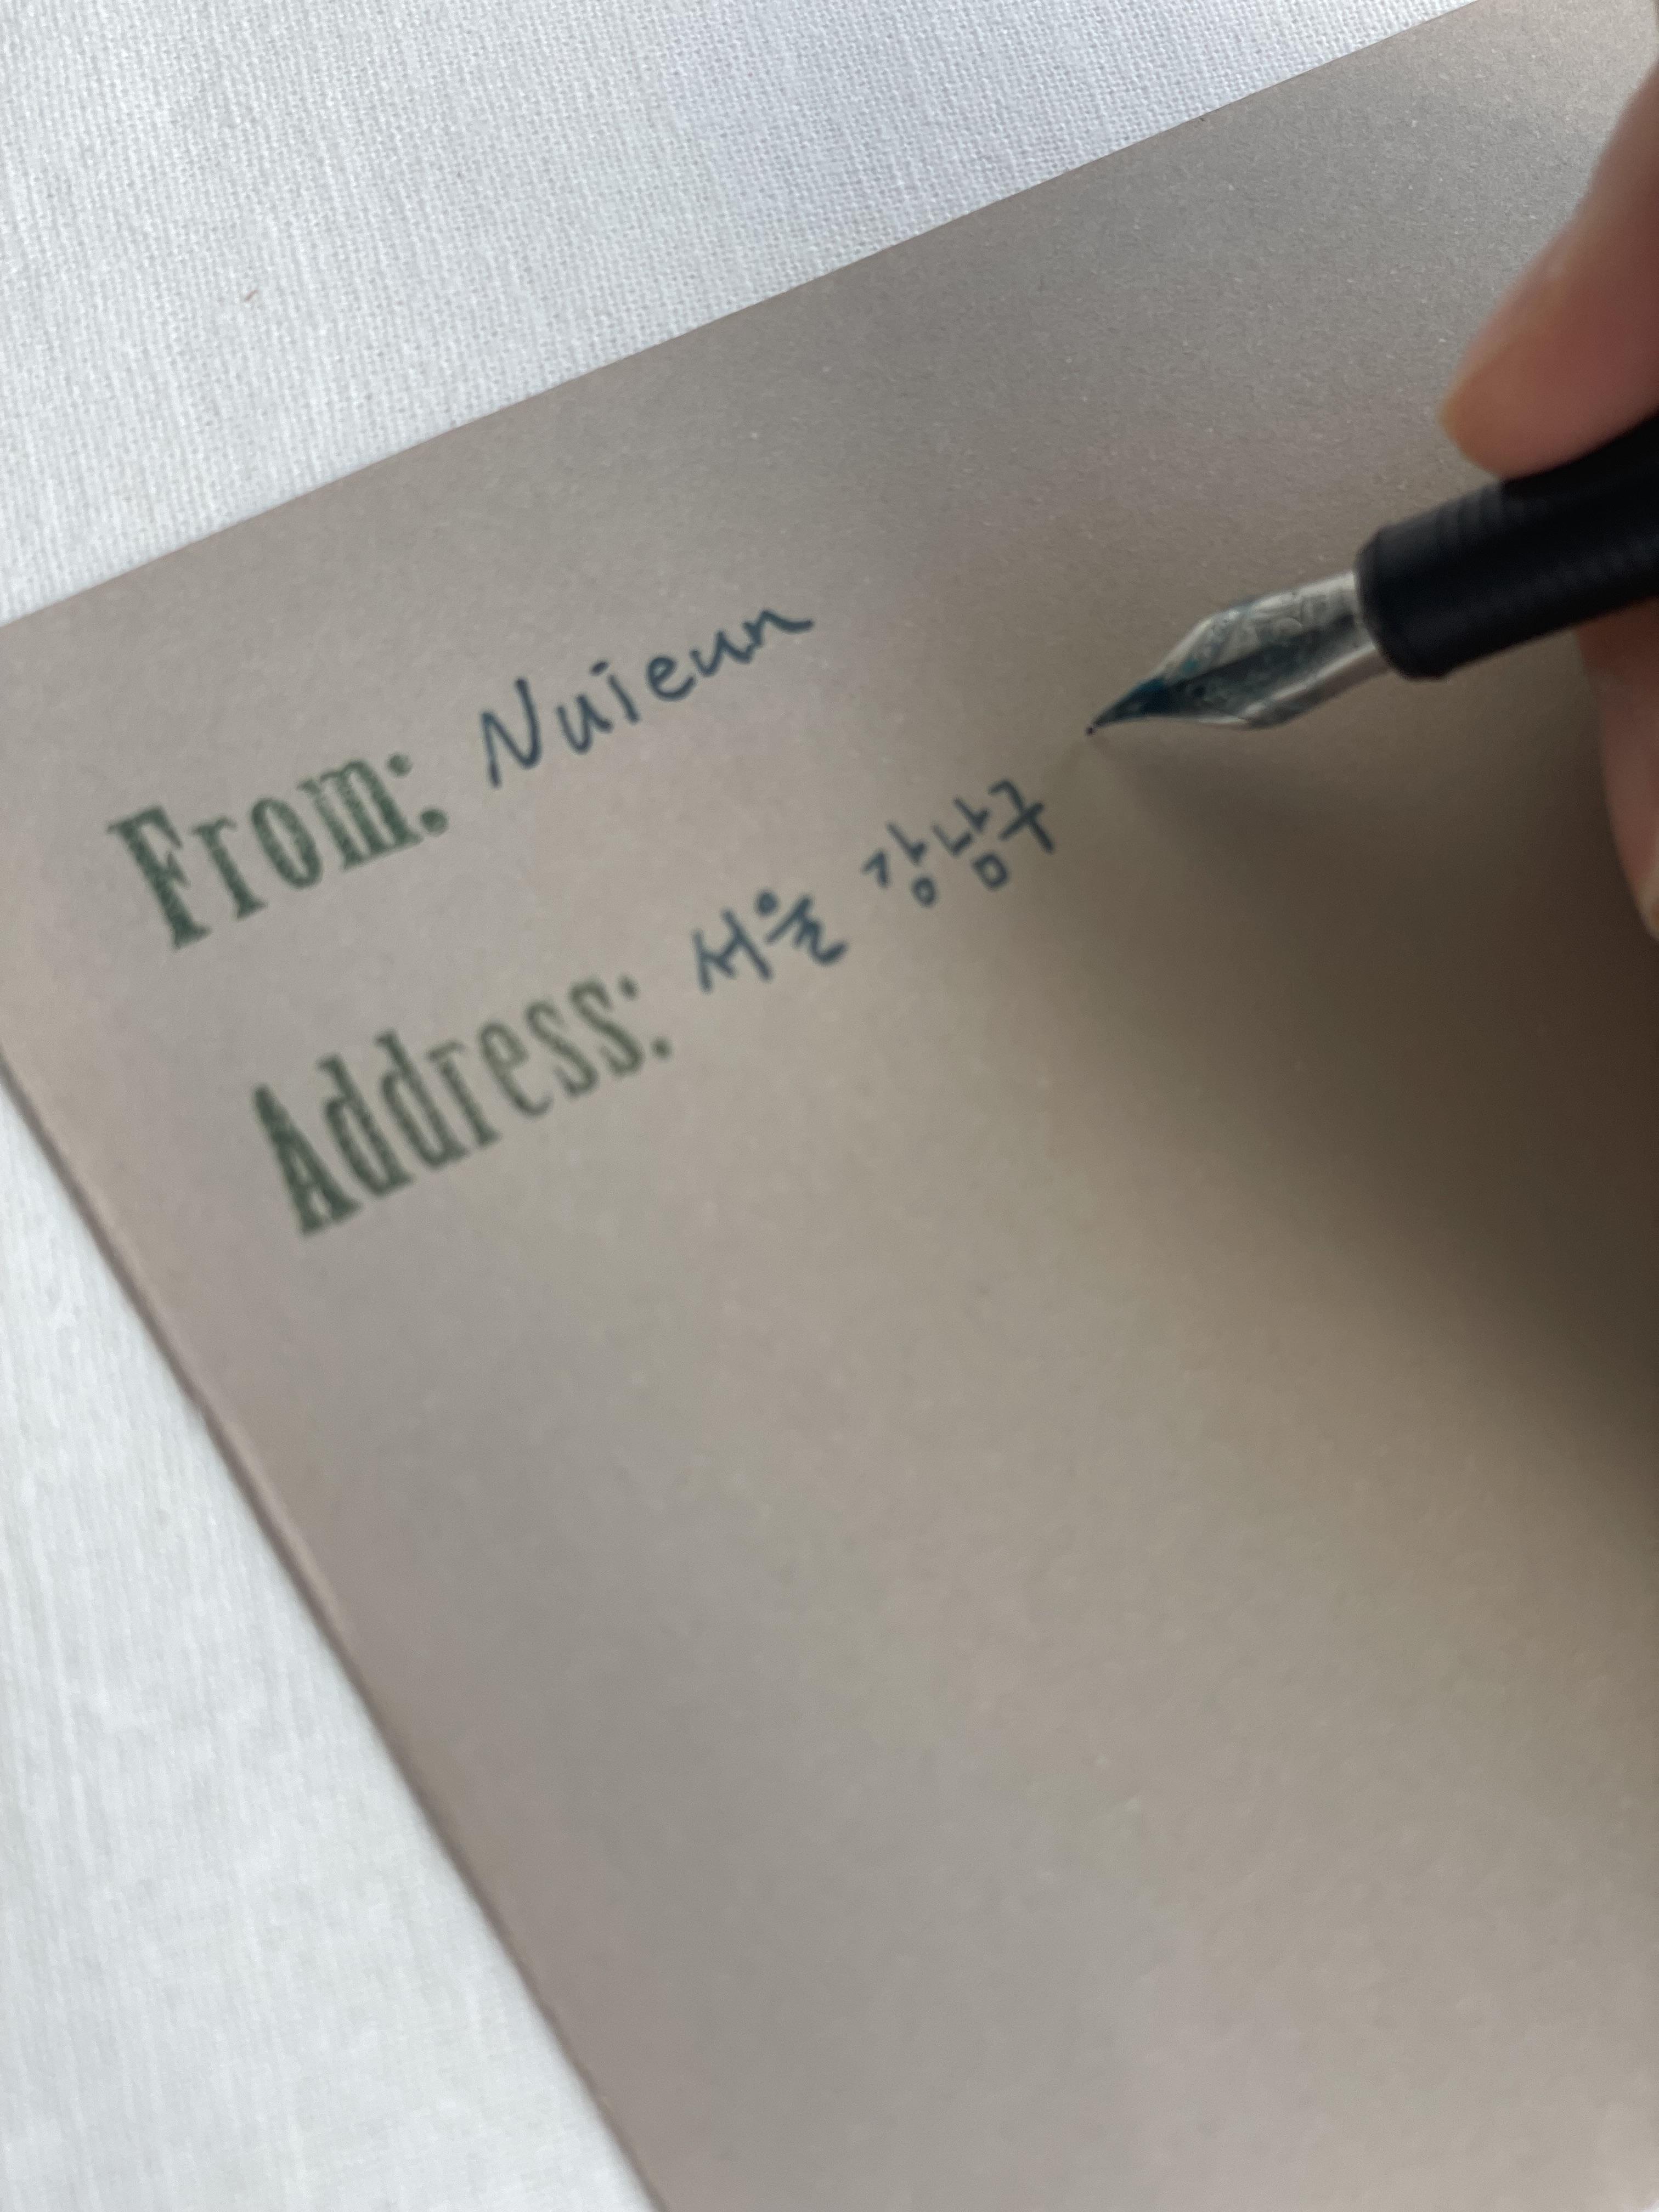 From: Nuieun
Address: 서울 강남구